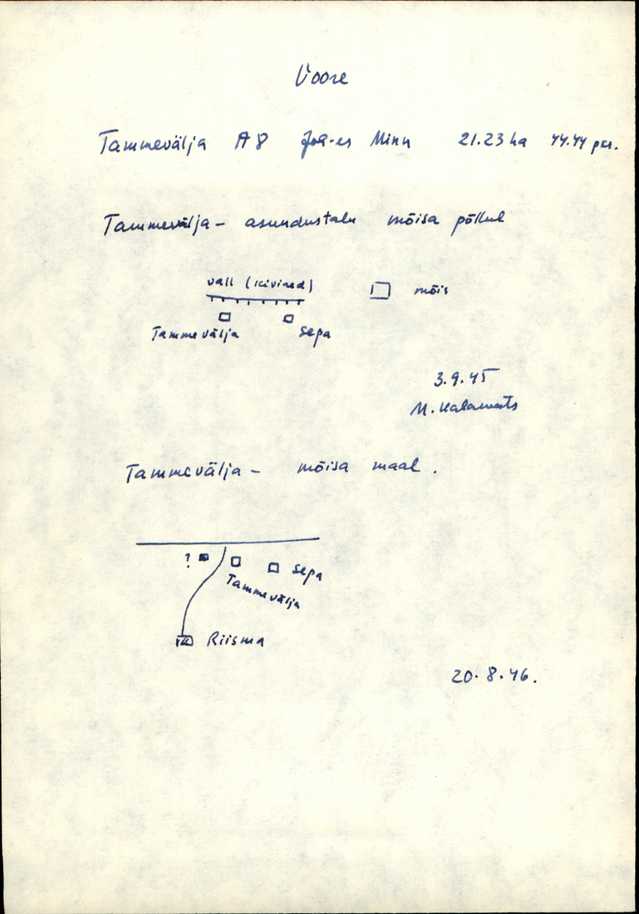 Voore
Tammevälja A8 Minn 21.23 ha 44.44 per.
Tammevälja - asundustalu mõisa põllul
vall (kivined) mõis
Tammevälja Sepa
3.9.45
M. Kalamets
Tammevälja - mõisa maal.
? Sepa
Tammevälja
Riisma
20.8.46.